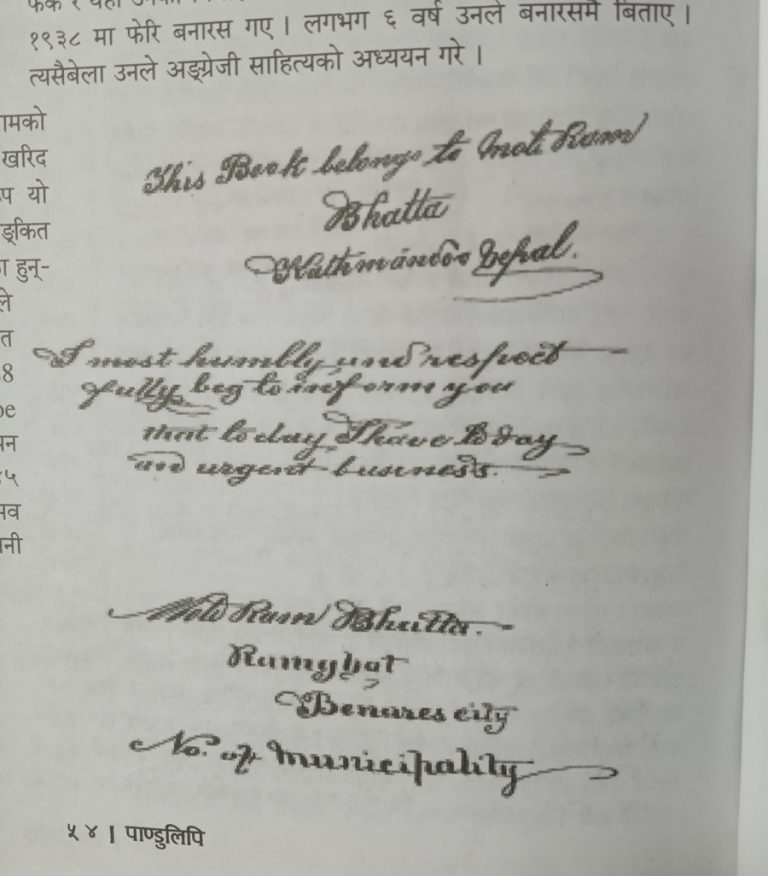 फर्के र यहाँ
१९३८ मा फेरि बनारस गए । लगभग ६ वर्ष उनले बनारसमै बिताए ।
त्यसैबेला उनले अङ्ग्रेजी साहित्यको अध्ययन गरे ।
ामको
खरिद
यो
ङ्कित
हुन्-
ले
त
8
be
५
नी
This Book belongs to Moti Ram
Bhatta
Kathmandoo Nepal.
I most humbly and respect
fully beg to inform you
that to day I have to day
and urgent business.
Moti Ram Bhatta.
Ramghat
Benares city
No. of Municipality
५४ । पाण्डुलिपि